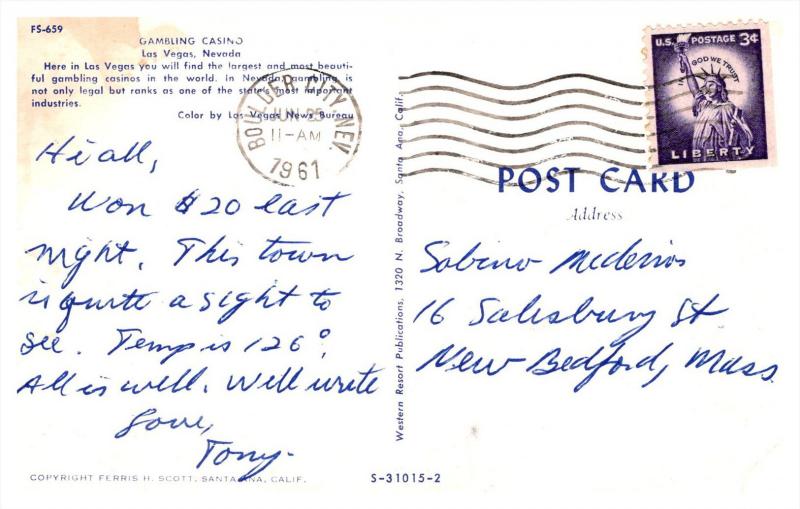 FS-659
GAMBLING CASINO
Las Vegas, Nevada
Here in Las Vegas you will find the largest and most beauti-
ful gambling casinos in the world. In Nevada, gambling is
not only legal but ranks as one of the state's most important
industries.
Color by Las Vegas News Bureau
BOULDER CITY, NEV.
JUN 25
11-AM
1961
U.S. POSTAGE 3¢
IN GOD WE TRUST
LIBERTY
Hi all,
Won $20 last
night. This town
is quite a sight to
see. Temp is 126°,
All is well. Will write
Love,
Tony-
Western Resort Publications, 1320 N. Broadway, Santa Ana, Calif.
POST CARD
Address
Sabino Medeiros
16 Salesbury St
New Bedford, Mass.
COPYRIGHT FERRIS H. SCOTT, SANTA ANA, CALIF.
S-31015-2